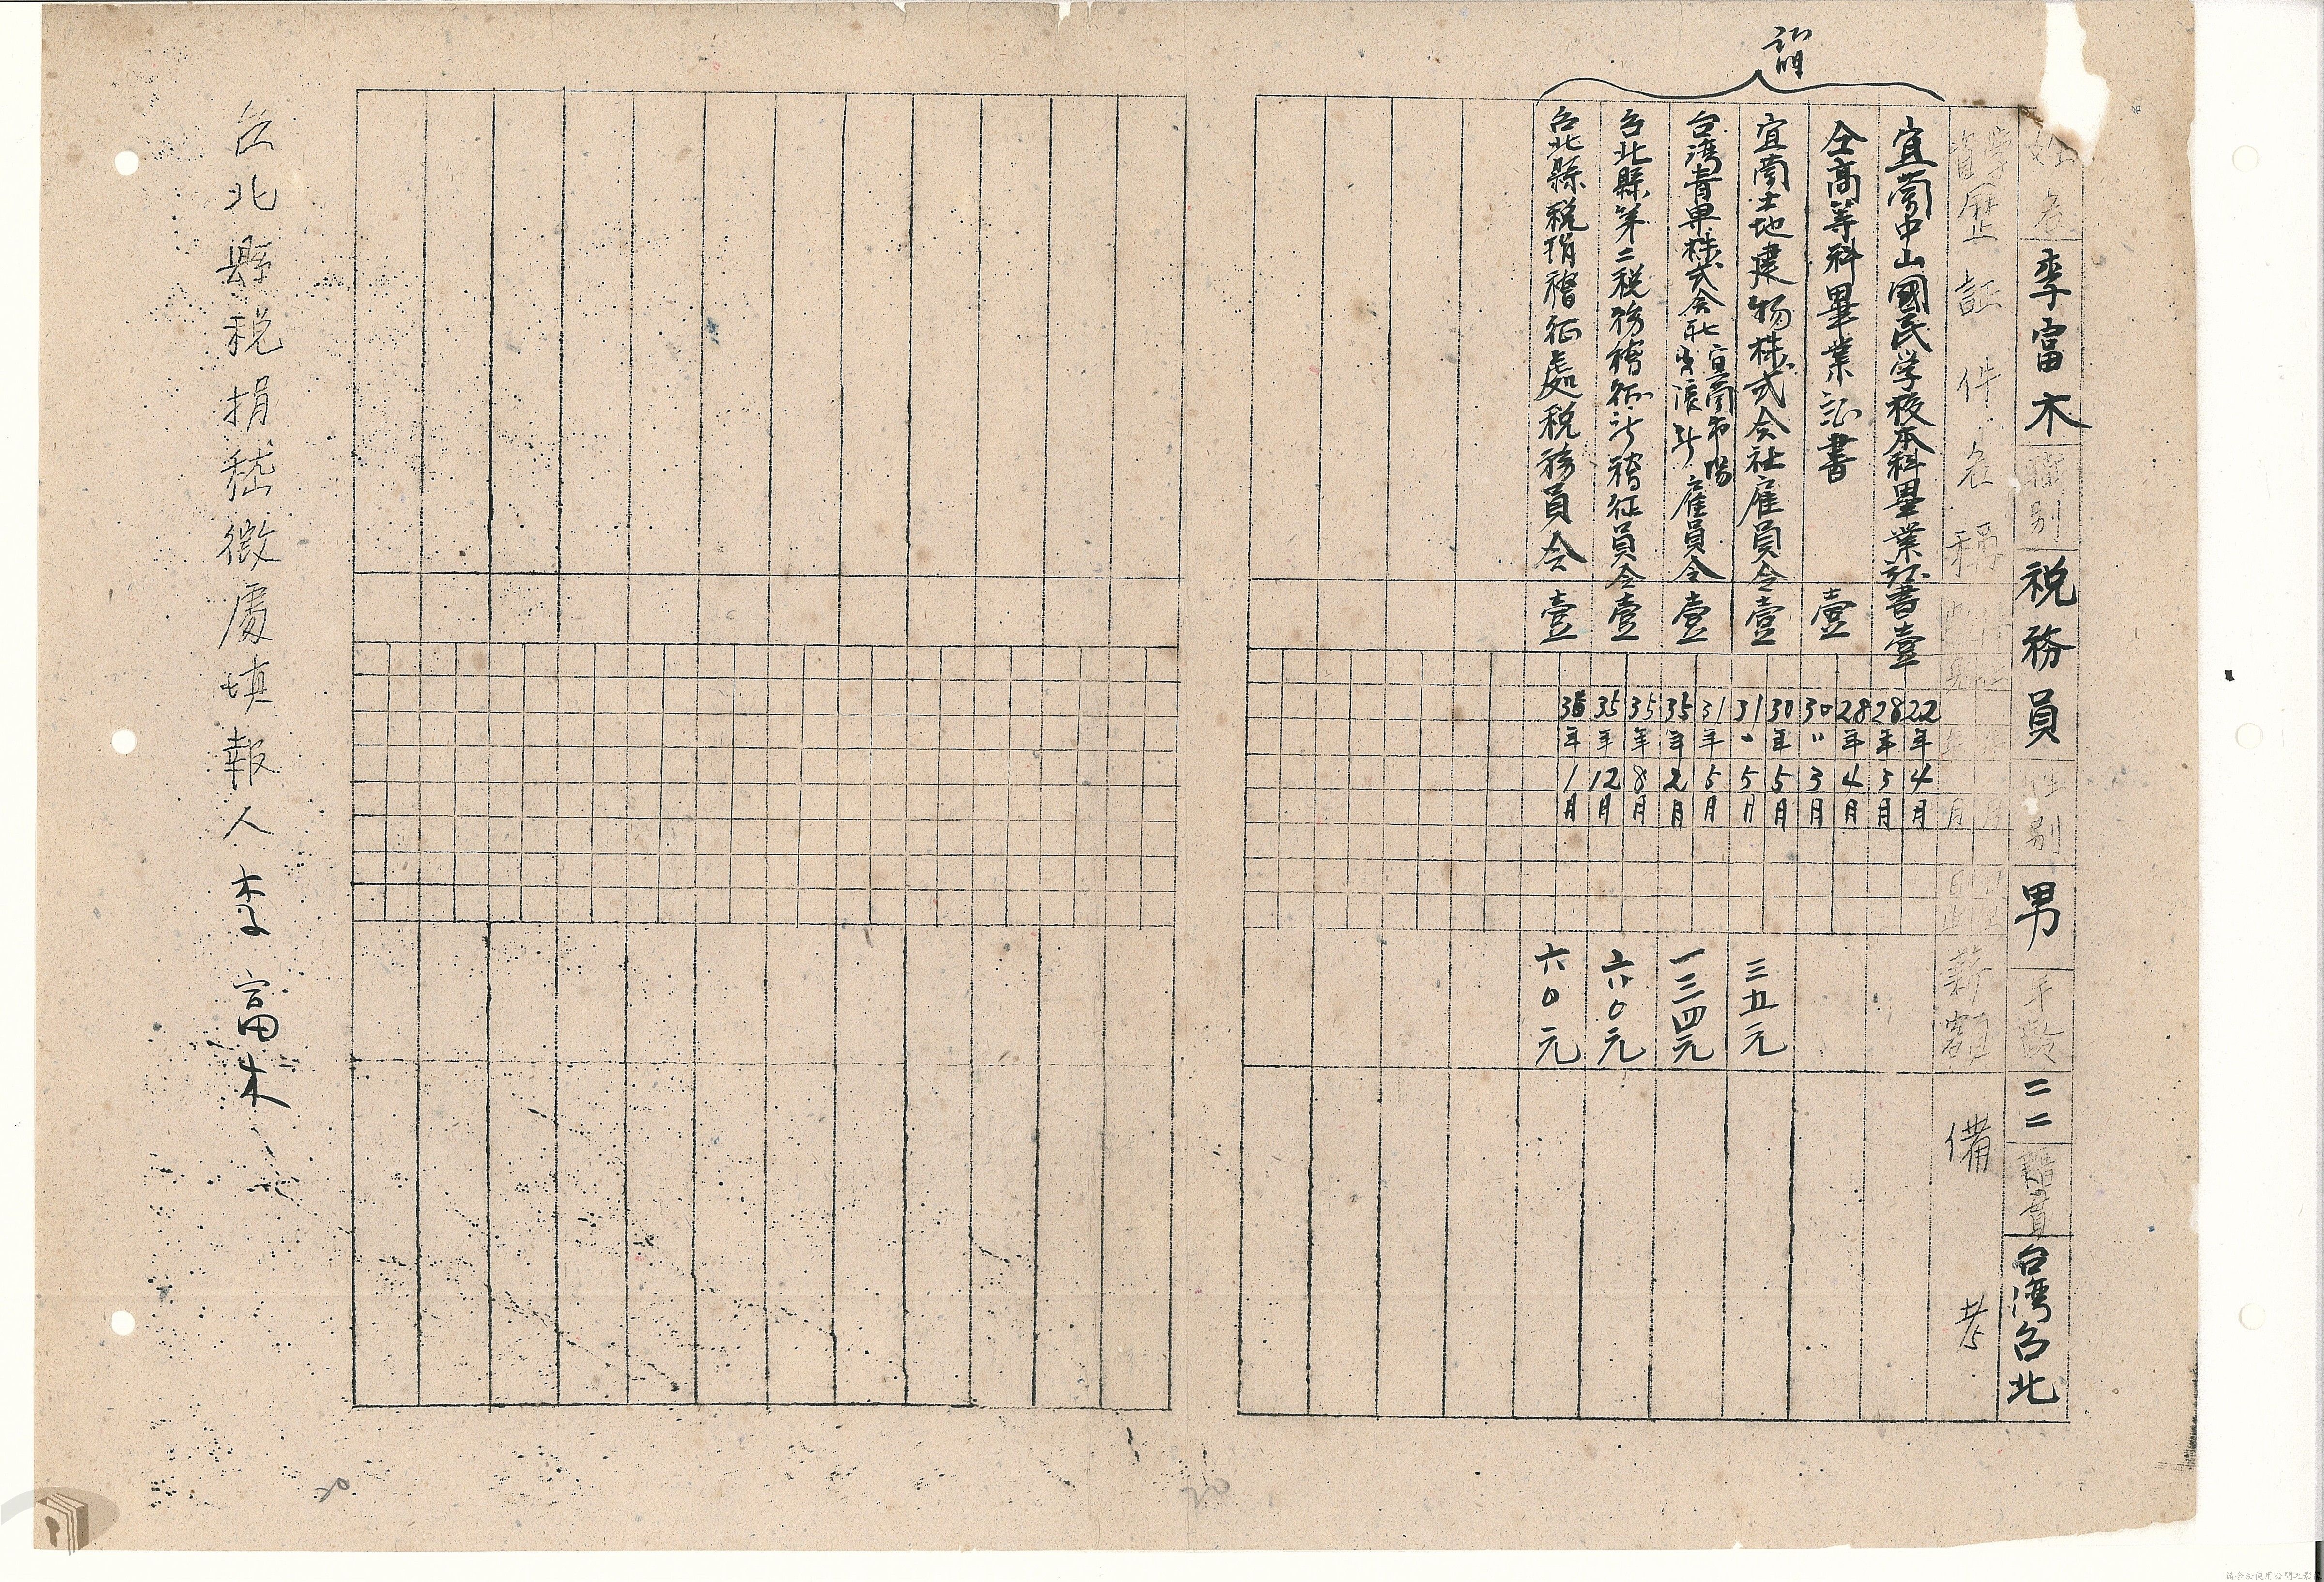 証明
姓名 李富木 職別 税務員 性別 男 年齡 二二 籍貫 台湾台北
學資歷証件名稱 年月日 年月日 薪額 備考
宜蘭中山國民学校本科畢業証書 壹 22年4月 28年3月
仝高等科畢業証書 壹 28年4月 30〃3月
宜蘭土地建物株式会社雇員令 壹 30年5月 31〃5月 三五元
台湾青果株式会社宜蘭市場雇員令 壹 31年5月 35年2月 一三四元
台北縣第二税務稽征所稽征員令 壹 35年8月 35年12月 六〇元
台北縣税捐稽征處税務員令 壹 36年1月 六〇元
台北縣税捐嵇徵處填報人 李富木
20
20
請合法使用公開之影